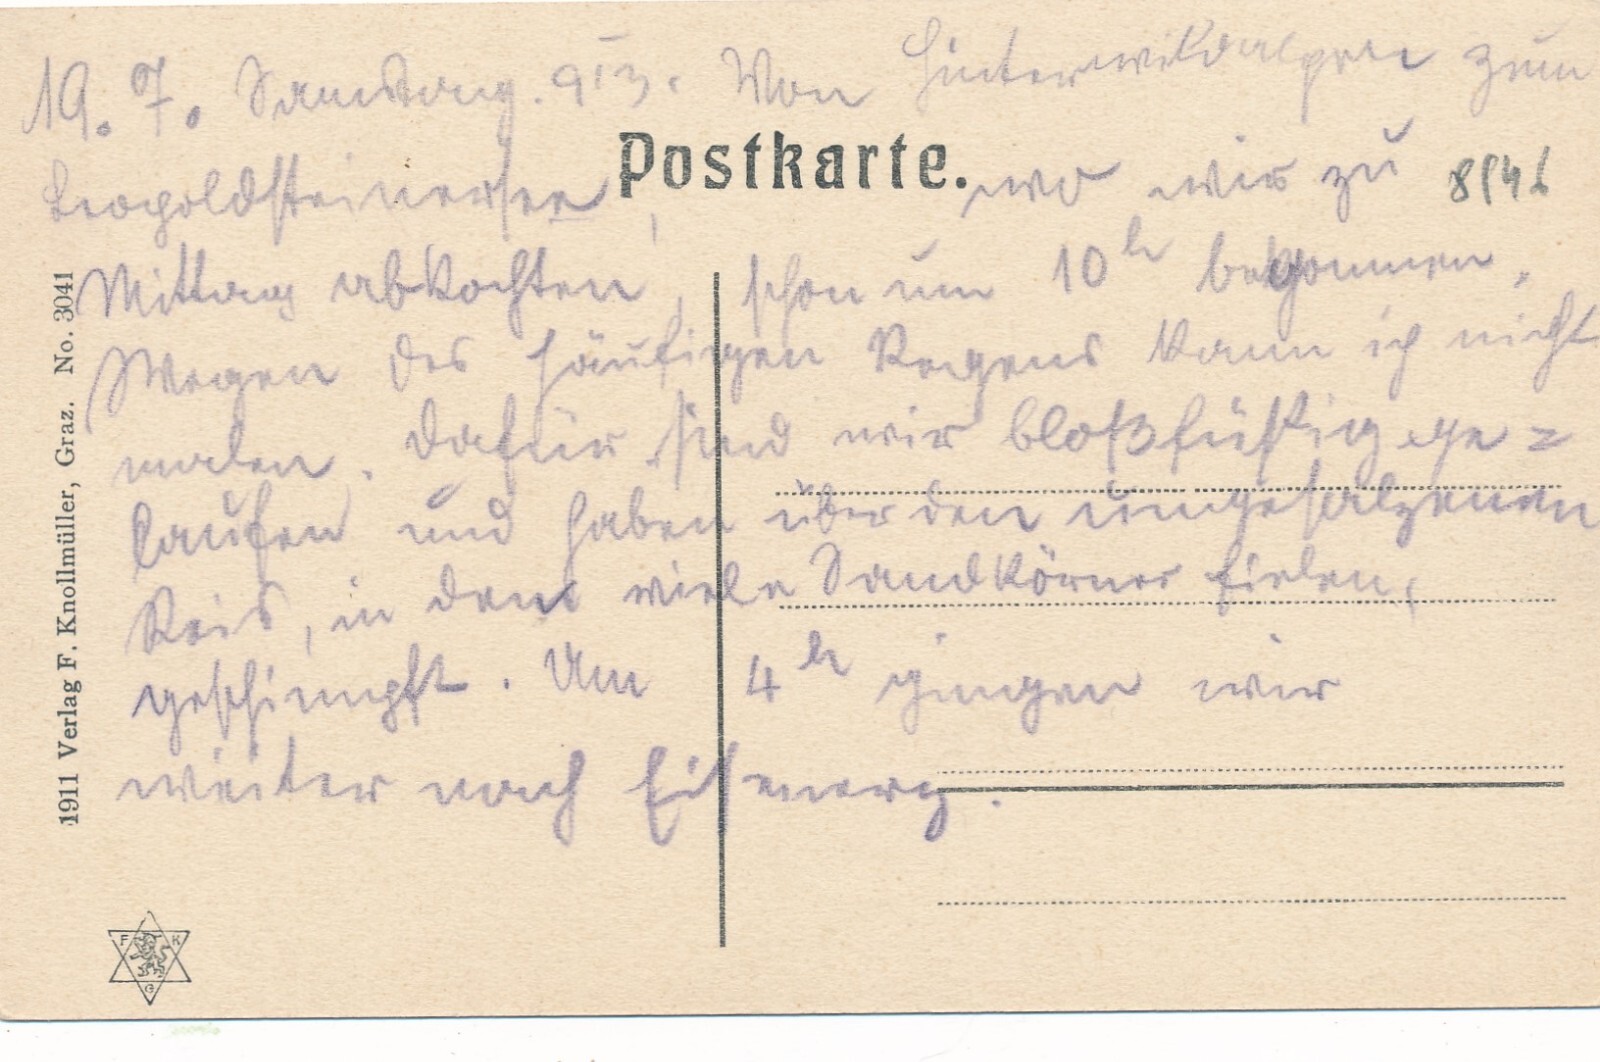 19. 7. Samstag. 913. Von Hinterwildalpen zum
Postkarte.
Leopoldsteinersee, wo wir zu
Mittag abkochten, schon um 10h begonnen.
Wegen des häufigen Regens kann ich nicht
malen. Dafür sind wir bloßfüßig ge=
laufen und haben über den ungesalzenen
Reis, in dem viele Sandkörner fielen,
geschimpft. Um 4h gingen wir
weiter nach Eisenerz.
1911 Verlag F. Knollmüller, Graz. No. 3041
F K
G